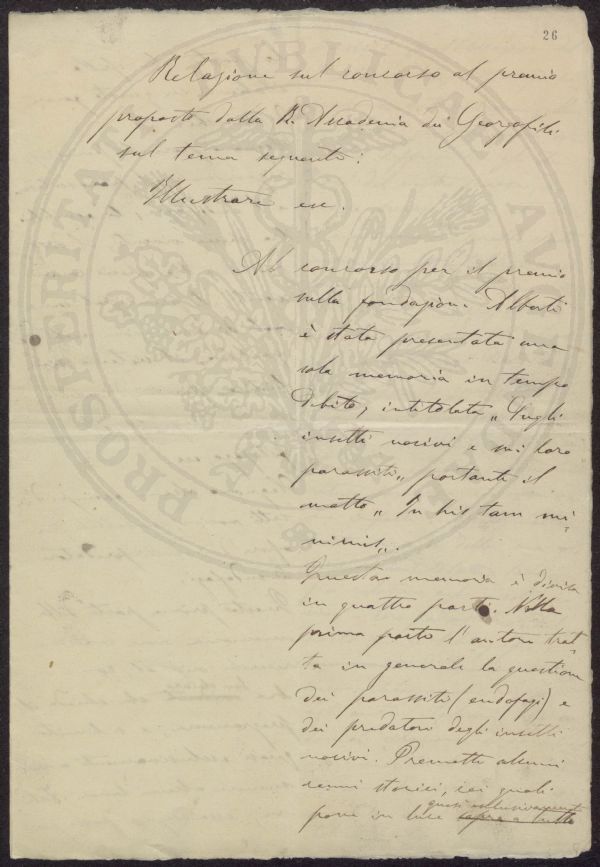 26
Relazione sul concorso al premio
proposto dalla R. Accademia dei Georgofili
sul tema seguente:
Illustrare ec.
Al concorso per il premio
sulla fondazione Alberti
è stata presentata una
sola memoria in tempo
debito, intitolata „Sugli
insetti nocivi e sui loro
parassiti„ portante il
motto „In his tam mi-
nimis„.
Questa memoria è divisa
in quattro parti. Nella
prima parte l'autore trat-
ta in generale la questione
dei parassiti (endofagi) e
dei predatori degli insetti
nocivi. Premette alcuni
cenni storici, nei quali
quasi esclusivamente
pone in luce sopra a tutto
PROSPERITATI PUBLICAE AUGE